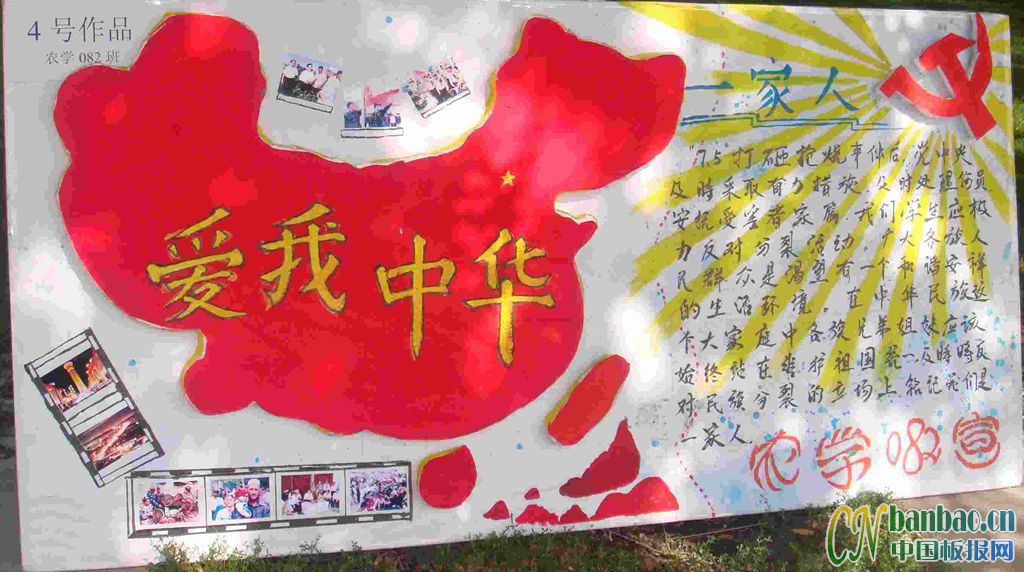 4 号作品
农学 082 班
爱我中华
一家人
"7.5"打砸抢烧事件后,党中央
及時采取有力措施,及时处理伤员
安抚受害者家属,我们学生应极
力反对分裂活动,广大各族人
民群众是渴望有一个和谐安祥
的生活环境。在中华民族这
个大家庭中各族兄弟姐妹应该
始终站在维护祖国统一,反時時反
对民族分裂的立场上,铭记我们是
一家人
农学082宣
CN banbao.cn
中国板报网